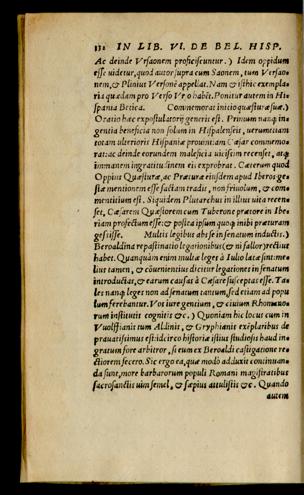 332 IN LIB. VI. DE BEL. HISP.
Ac deinde Versaonem proficiscuntur.) Idem oppidum
esse uidetur, quod autor supra cum Saonem, tum Versao-
nem, & Plinius Versonē appellat. Nam & isthic exempla-
ria quædam pro Verso Vro habēt. Ponitur autem in Hi-
spania Betica. Commemorat initio quæsturæ suæ.)
Oratio hæc expostulatorij generis est. Primum nanq; in-
gentia beneficia non solum in Hispalenseis, uerumetiam
totam ulterioris Hispaniæ prouintiam Cæsar commemo-
rat: ac deinde eorundem maleficia uicissim recenset, atq;
immanem ingratitudinem eis exprobrat. Cæterum quod
Oppius Quæsturæ, ac Præturæ eiusdem apud Iberos ge-
stæ mentionem esse factam tradit, non friuolum, & com-
mentitium est. Siquidem Plutarchus in illius uita recen-
set, Cæsarem Quæstorem cum Tuberone prætore in Ibe-
riam profectum esse: & postea ipsum quoq; inibi præturam
gessisse. Multis legibus abs se in senatum inductis.)
Beroaldina repastinatio legationibus (& ni fallor) rectius
habet. Quanquàm enim multæ leges à Iulio latæ sint: me-
lius tamen, & cōuenientius dicitur legationes in senatum
introductas, & earum causas à Cæsare susceptas esse. Ta-
les nanq; leges non ad senatum tantum, sed etiam ad popu-
lum ferebantur. Vos iure gentium, & ciuium Rhomano-
rum institutis cognitis &c.) Quoniam hic locus cum in
Vuolffianis tum Aldinis, & Gryphianis exēplaribus de
prauatissimus est: idcirco historiæ istius studiosis haud in-
gratum fore arbitror, si eum ex Beroaldi castigatione re-
ctiorem fecero. Sic ergo ea, quæ modò adduxit continuan-
da sunt, more barbarorum populi Romani magistratibus
sacrosanctis uim semel, & sæpius attulistis &c. Quando
autem